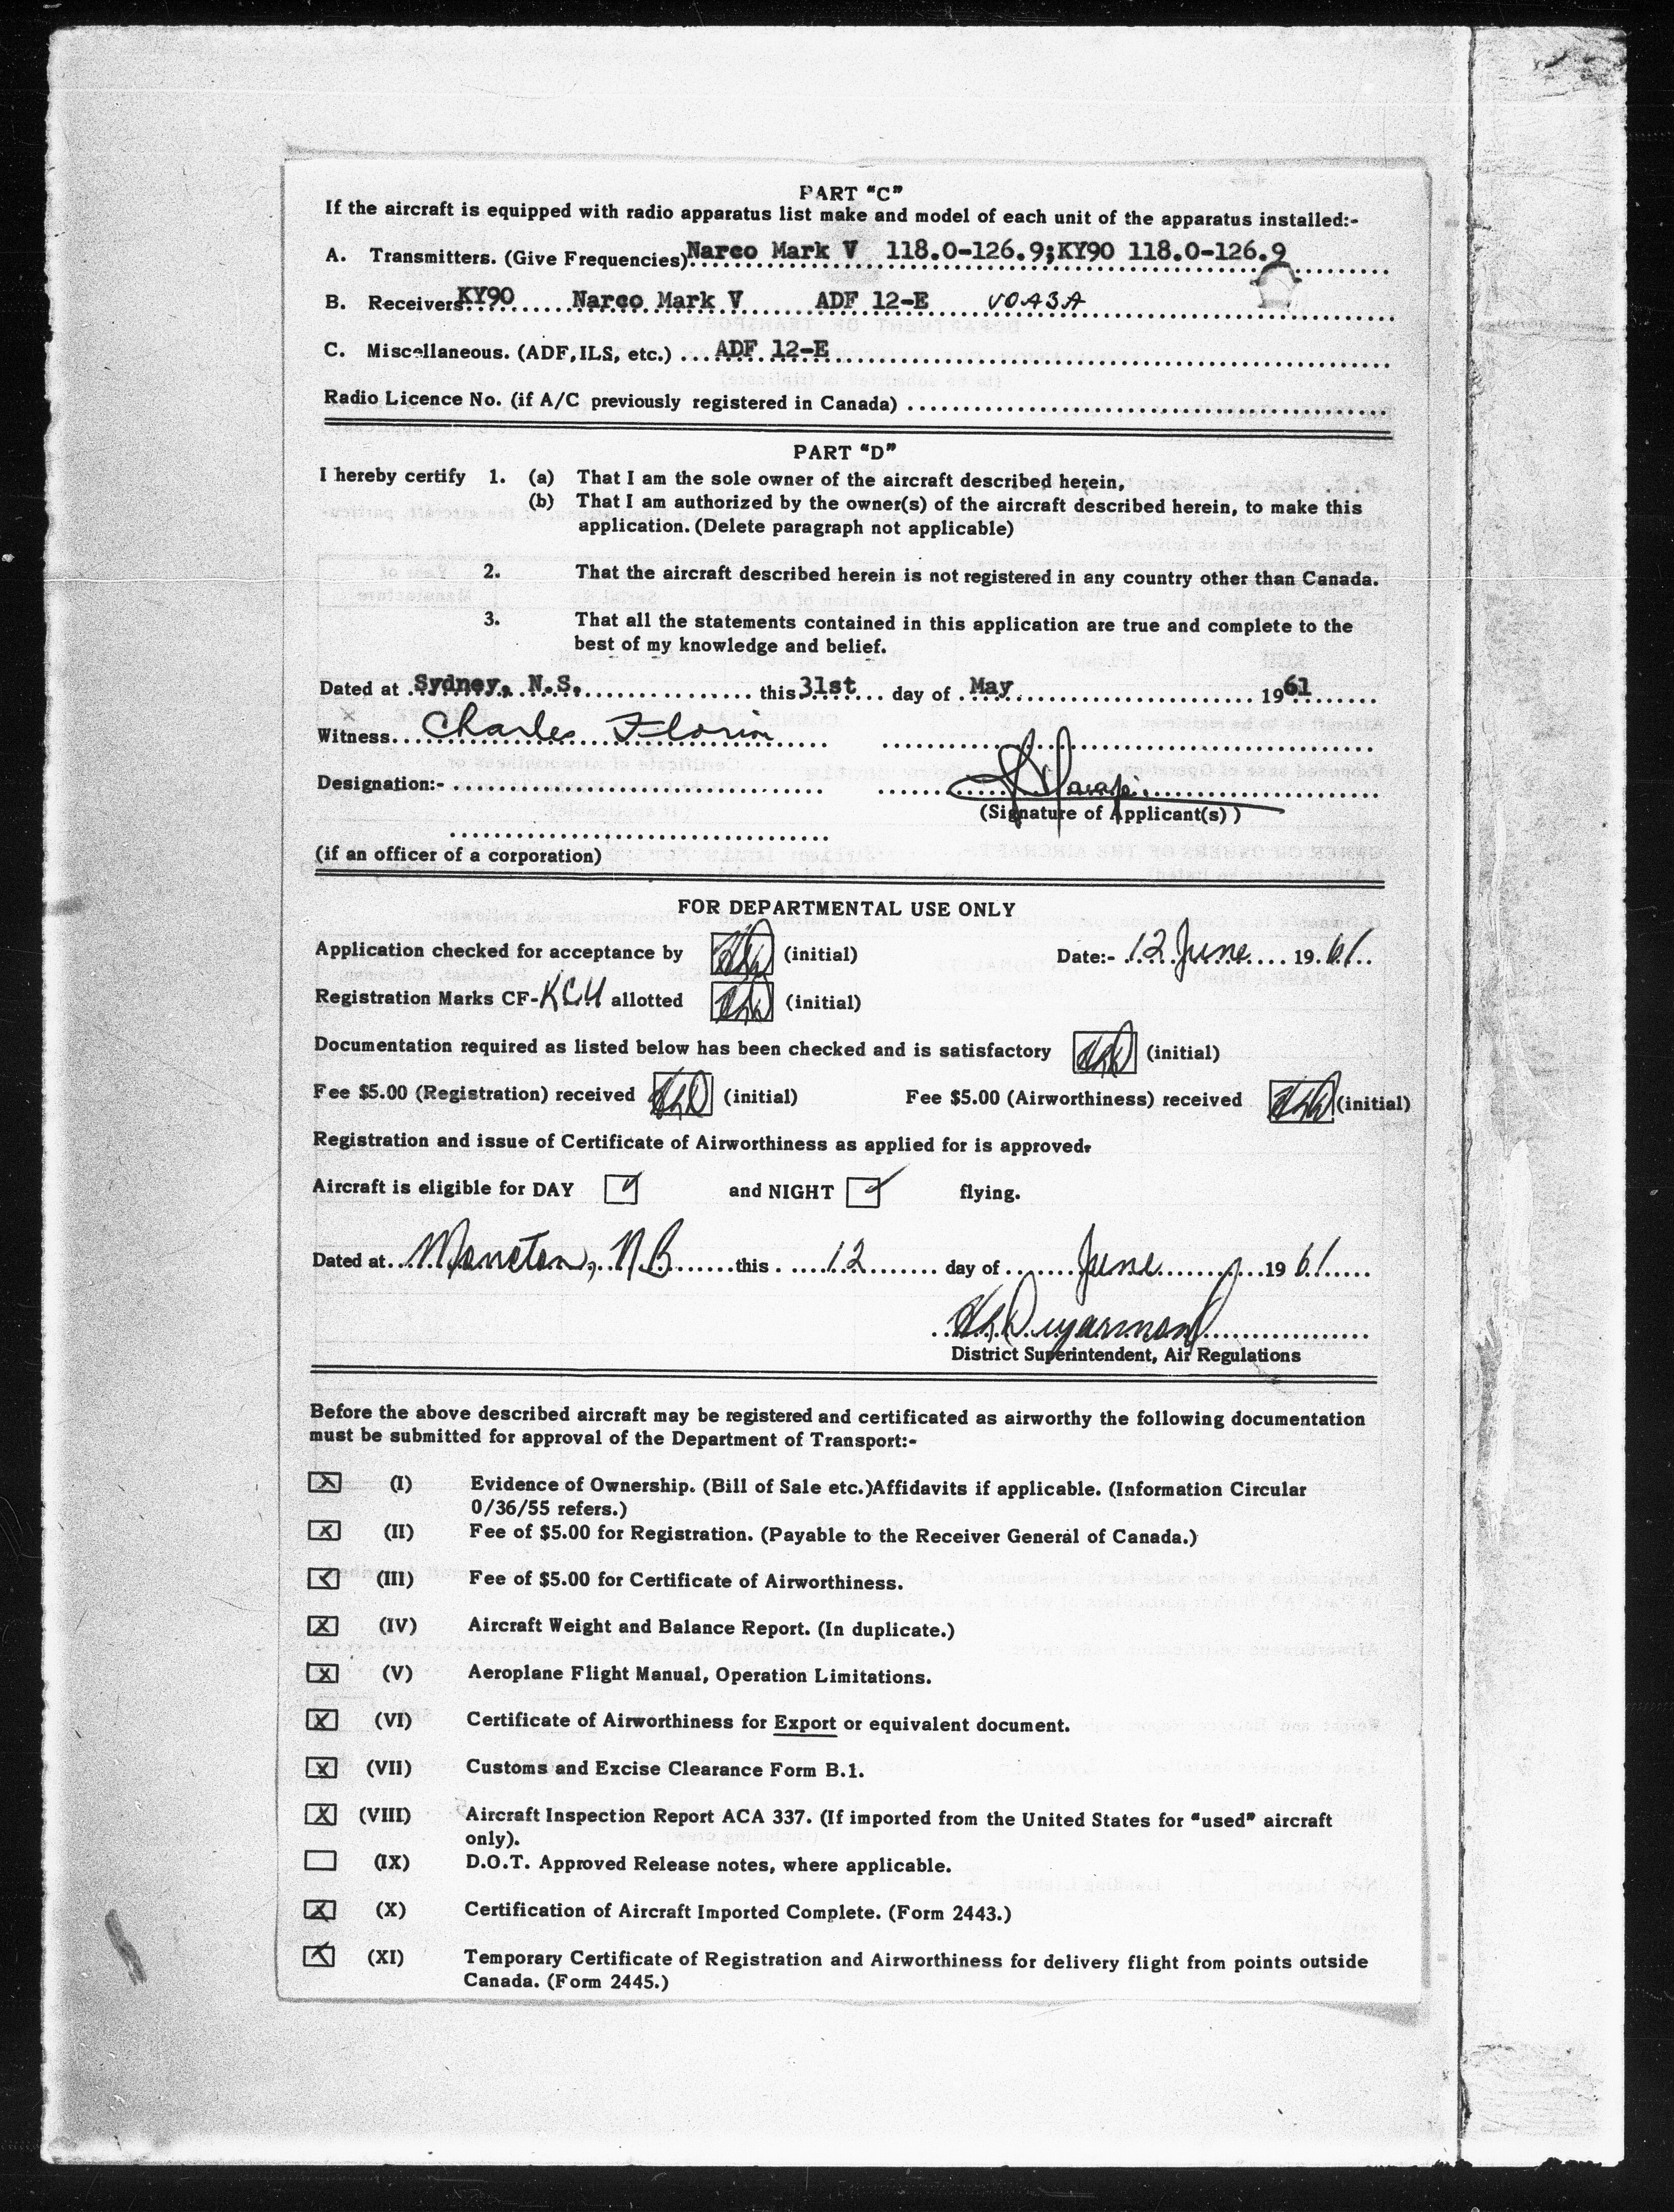 PART "C"
If the aircraft is equipped with radio apparatus list make and model of each unit of the apparatus installed:-
A. Transmitters. (Give Frequencies) Narco Mark V 118.0-126.9;KY90 118.0-126.9
B. Receivers KY90 Narco Mark V ADF 12-E VOA3A
C. Miscellaneous. (ADF, ILS, etc.) ADF 12-E
Radio Licence No. (if A/C previously registered in Canada)
PART "D"
I hereby certify 1. (a) That I am the sole owner of the aircraft described herein,
(b) That I am authorized by the owner(s) of the aircraft described herein, to make this
application. (Delete paragraph not applicable)
2. That the aircraft described herein is not registered in any country other than Canada.
3. That all the statements contained in this application are true and complete to the
best of my knowledge and belief.
Dated at Sydney, N.S. this 31st day of May 1961
Witness Charles Florian
Designation:-
(Signature of Applicant(s) )
(if an officer of a corporation)
FOR DEPARTMENTAL USE ONLY
Application checked for acceptance by (initial) Date:- 12 June 1961
Registration Marks CF-KCH allotted (initial)
Documentation required as listed below has been checked and is satisfactory (initial)
Fee $5.00 (Registration) received (initial) Fee $5.00 (Airworthiness) received (initial)
Registration and issue of Certificate of Airworthiness as applied for is approved.
Aircraft is eligible for DAY and NIGHT flying.
Dated at Moncton, N.B this 12 day of June 1961
District Superintendent, Air Regulations
Before the above described aircraft may be registered and certificated as airworthy the following documentation
must be submitted for approval of the Department of Transport:-
(I) Evidence of Ownership. (Bill of Sale etc.)Affidavits if applicable. (Information Circular
0/36/55 refers.)
(II) Fee of $5.00 for Registration. (Payable to the Receiver General of Canada.)
(III) Fee of $5.00 for Certificate of Airworthiness.
(IV) Aircraft Weight and Balance Report. (In duplicate.)
(V) Aeroplane Flight Manual, Operation Limitations.
(VI) Certificate of Airworthiness for Export or equivalent document.
(VII) Customs and Excise Clearance Form B.1.
(VIII) Aircraft Inspection Report ACA 337. (If imported from the United States for "used" aircraft
only).
(IX) D.O.T. Approved Release notes, where applicable.
(X) Certification of Aircraft Imported Complete. (Form 2443.)
(XI) Temporary Certificate of Registration and Airworthiness for delivery flight from points outside
Canada. (Form 2445.)